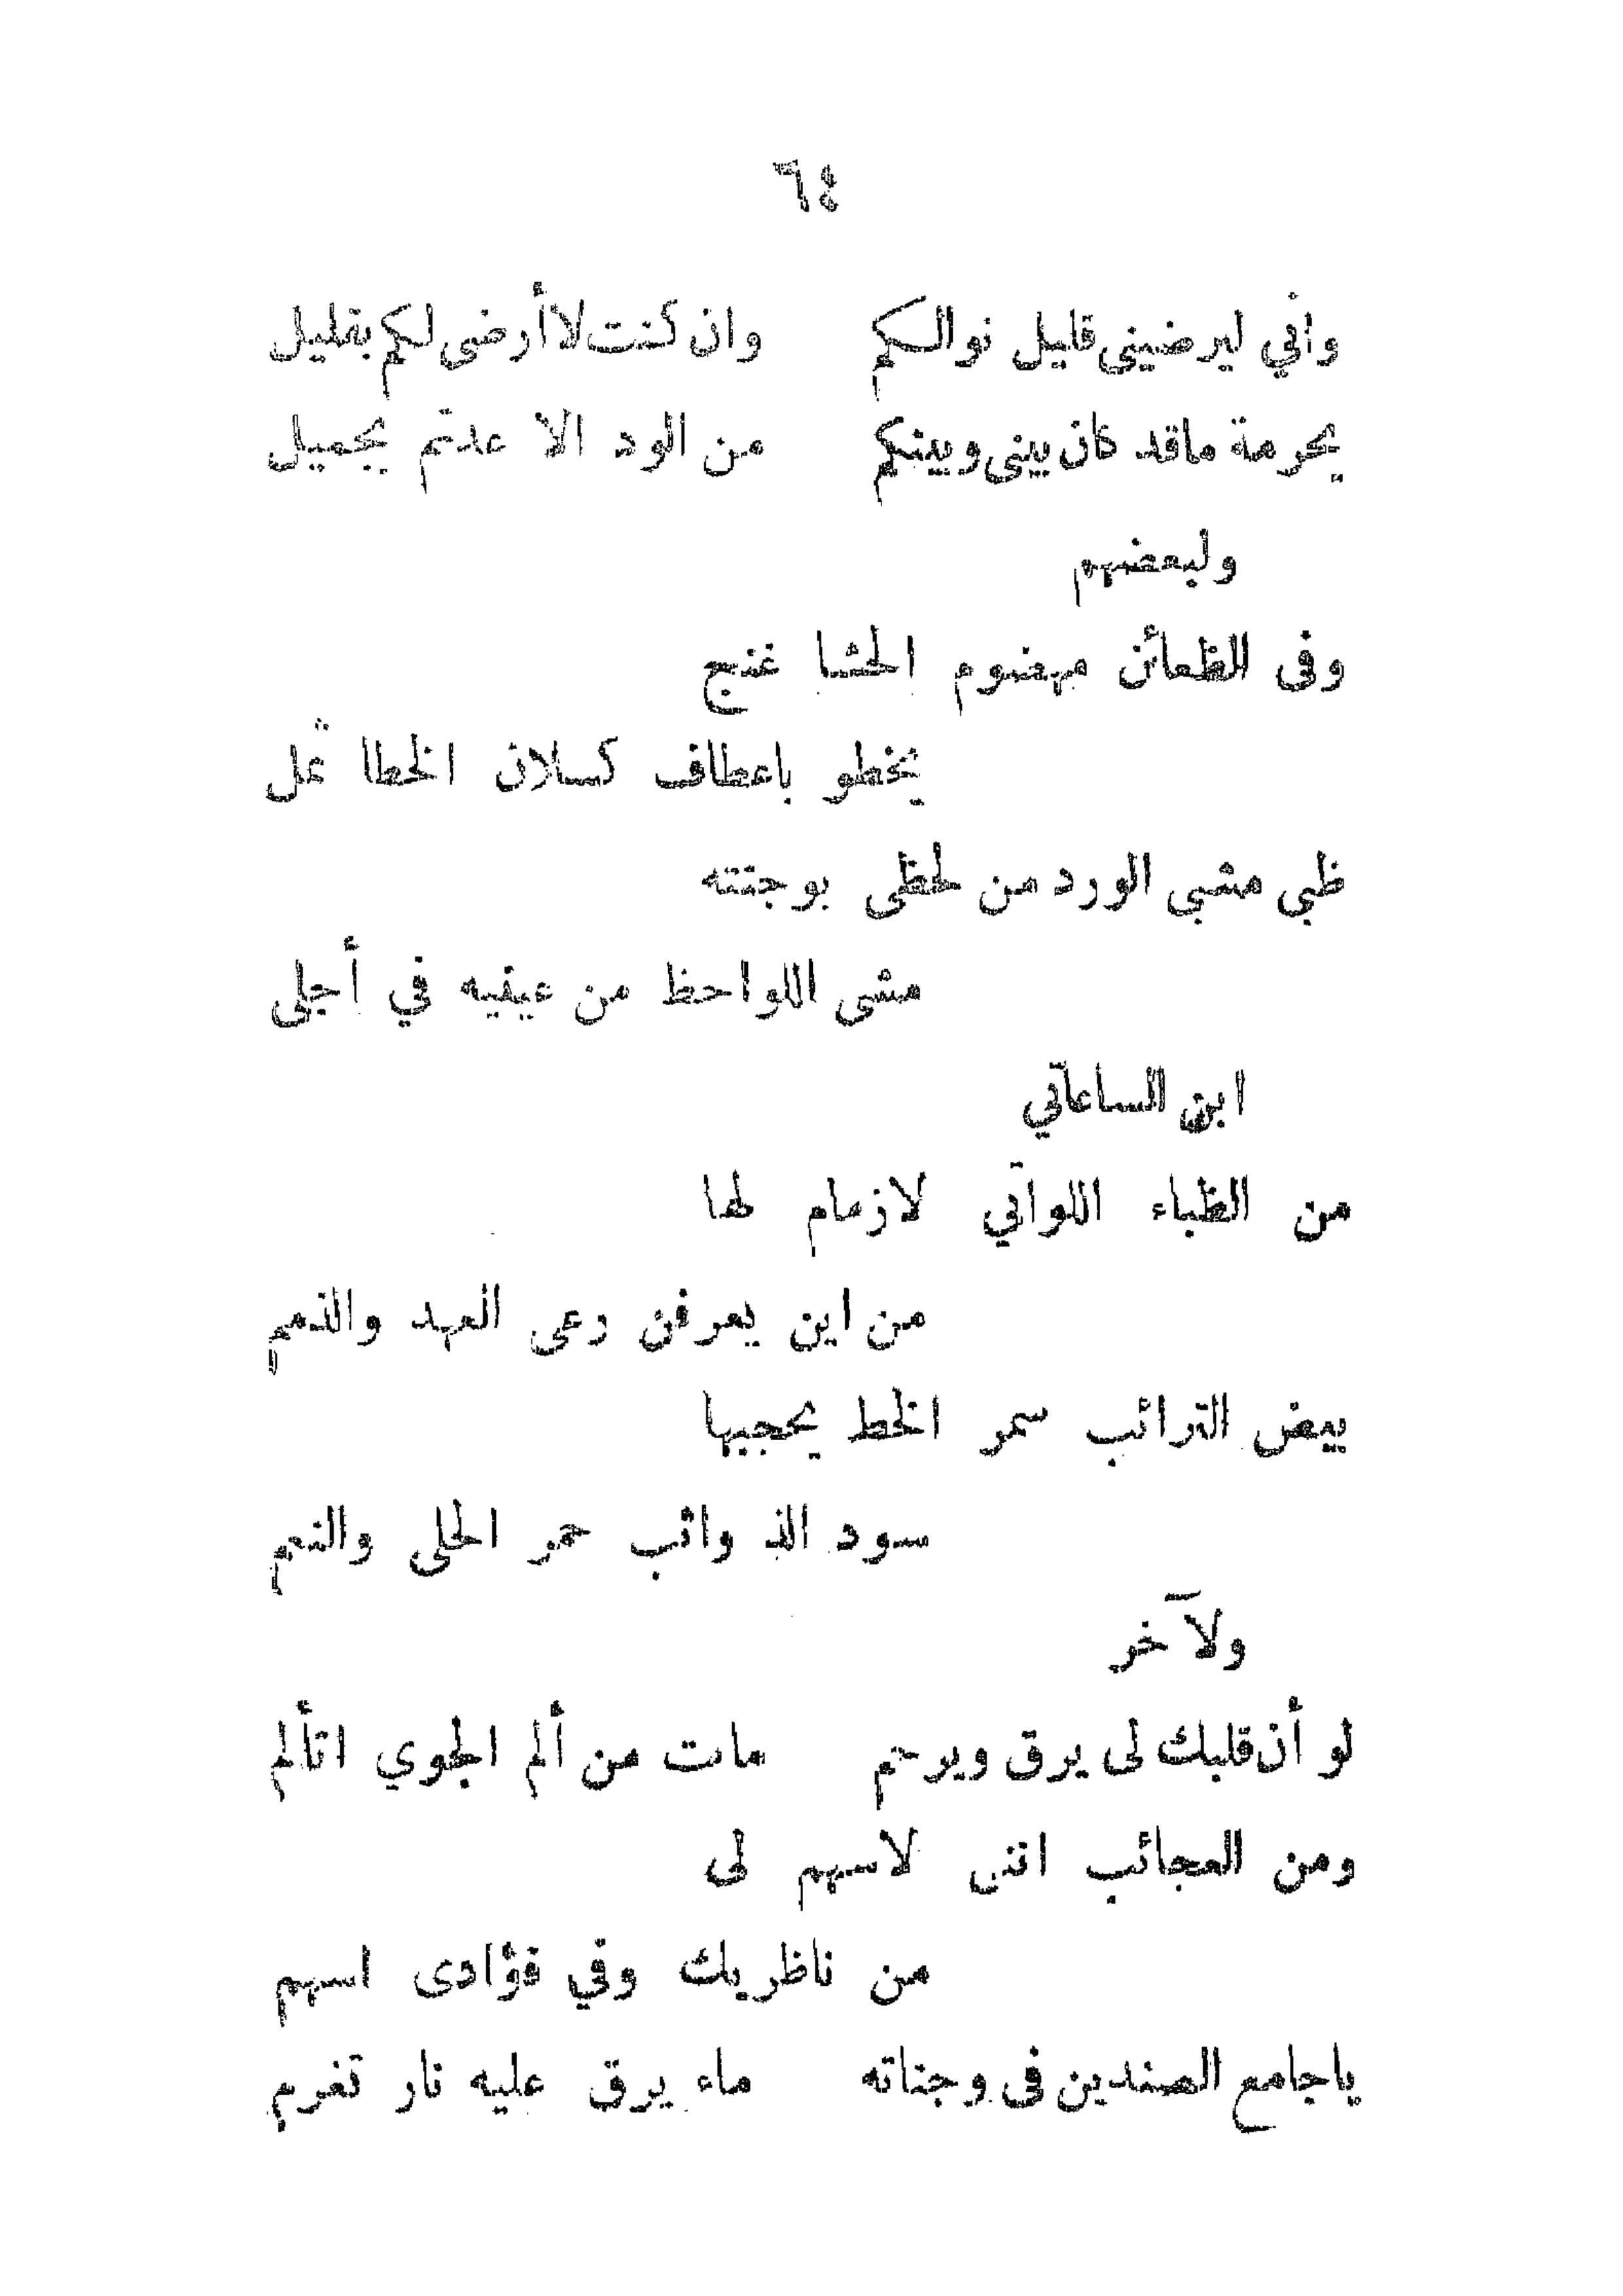 ٦٤
واني ليرضينى قليل نوالكم وان كنت لا أرضى لكم بقليل
بحرمة ماقد كان بينى وبينكم من الود الا عدتم بجميل
ولبعضهم
وفى الظعائن مهضوم الحشا غنج
يخطو باعطاف كسلان الخطا ثمل
ظبي مشي الورد من لحظى بوجنته
مشى اللواحظ من عينيه في أجلى
ابن الساعاتي
من الظباء اللواتي لازمام لها
من اين يعرفن رعى العهد والذمم
بيض الترائب سمر الخط يحجبها
سود الذوائب حمر الحلى والنعم
ولآخر
لو أن قلبك لى يرق ويرحم مابت من ألم الجوي اتألم
ومن العجائب اننى لاسهم لى
من ناظريك وفي فؤادى اسهم
ياجامع الضدين فى وجناته ماء يرق عليه نار تضرم